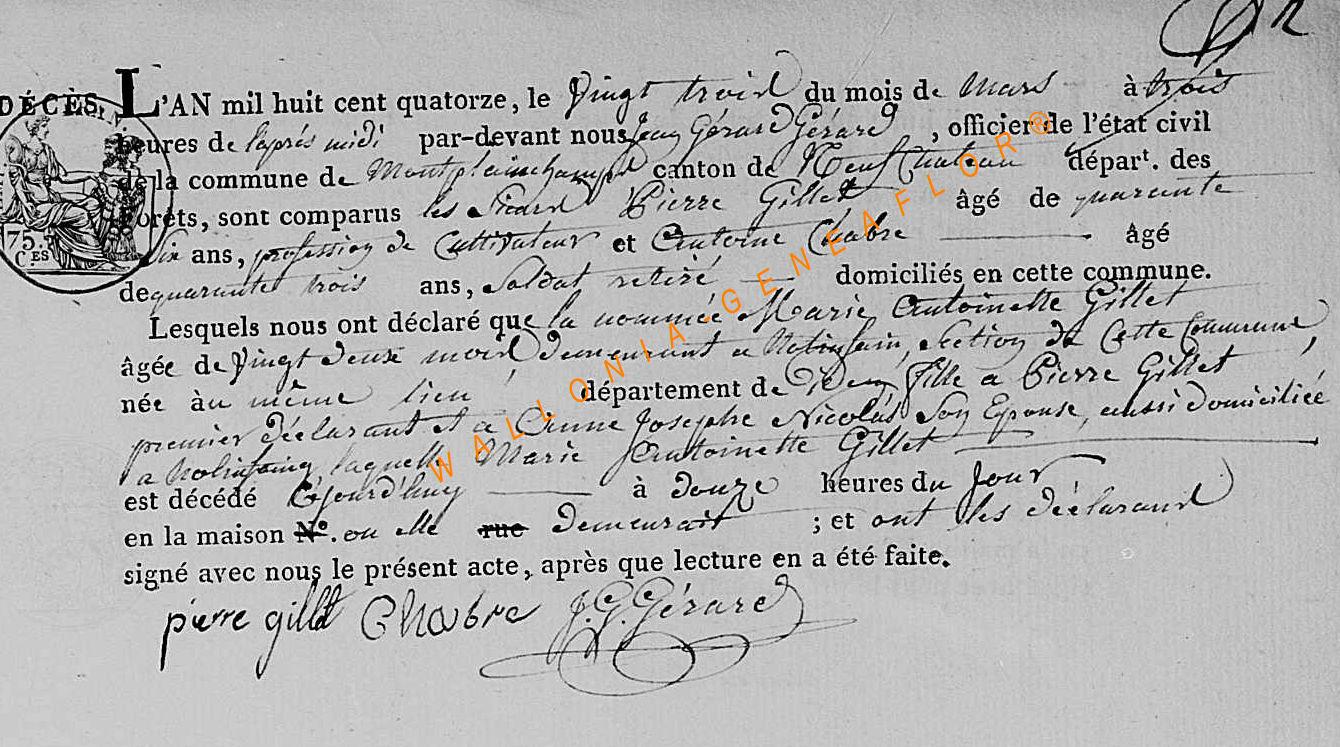 DÉCÈS.
L'AN mil huit cent quatorze, le Vingt trois du mois de Mars à trois
heures de l'après midi par-devant nous Jean Gérard Gérard, officier de l'état civil
de la commune de Montplainchamps canton de Neufchateau départ. des
Forêts, sont comparus les Sieurs Pierre Gillet âgé de quarente
Six ans, profession de Cultivateur et Antoine Chabre âgé
de quarente trois ans, Soldat retiré domiciliés en cette commune.
Lesquels nous ont déclaré que la nommée Marie Antoinette Gillet
âgée de Vingt deux mois demeurant a Nolinfain, Section de Cette Commune,
née à u même lieu département de idem fille a Pierre Gillet
premier déclarant et a Anne Josephe Nicolas Son Epouse, aussi domiciliée
a Nolinfaing laquelle Marie Antoinette Gillet
est décédé Cejourd'huy à douze heures du Jour
en la maison N°. ou elle rue demeurait ; et ont les déclarans
signé avec nous le présent acte, après que lecture en a été faite.
pierre gillet Chabre J. G. Gérard
75.
C.ES
WALLONIA-GENEAFLOR®